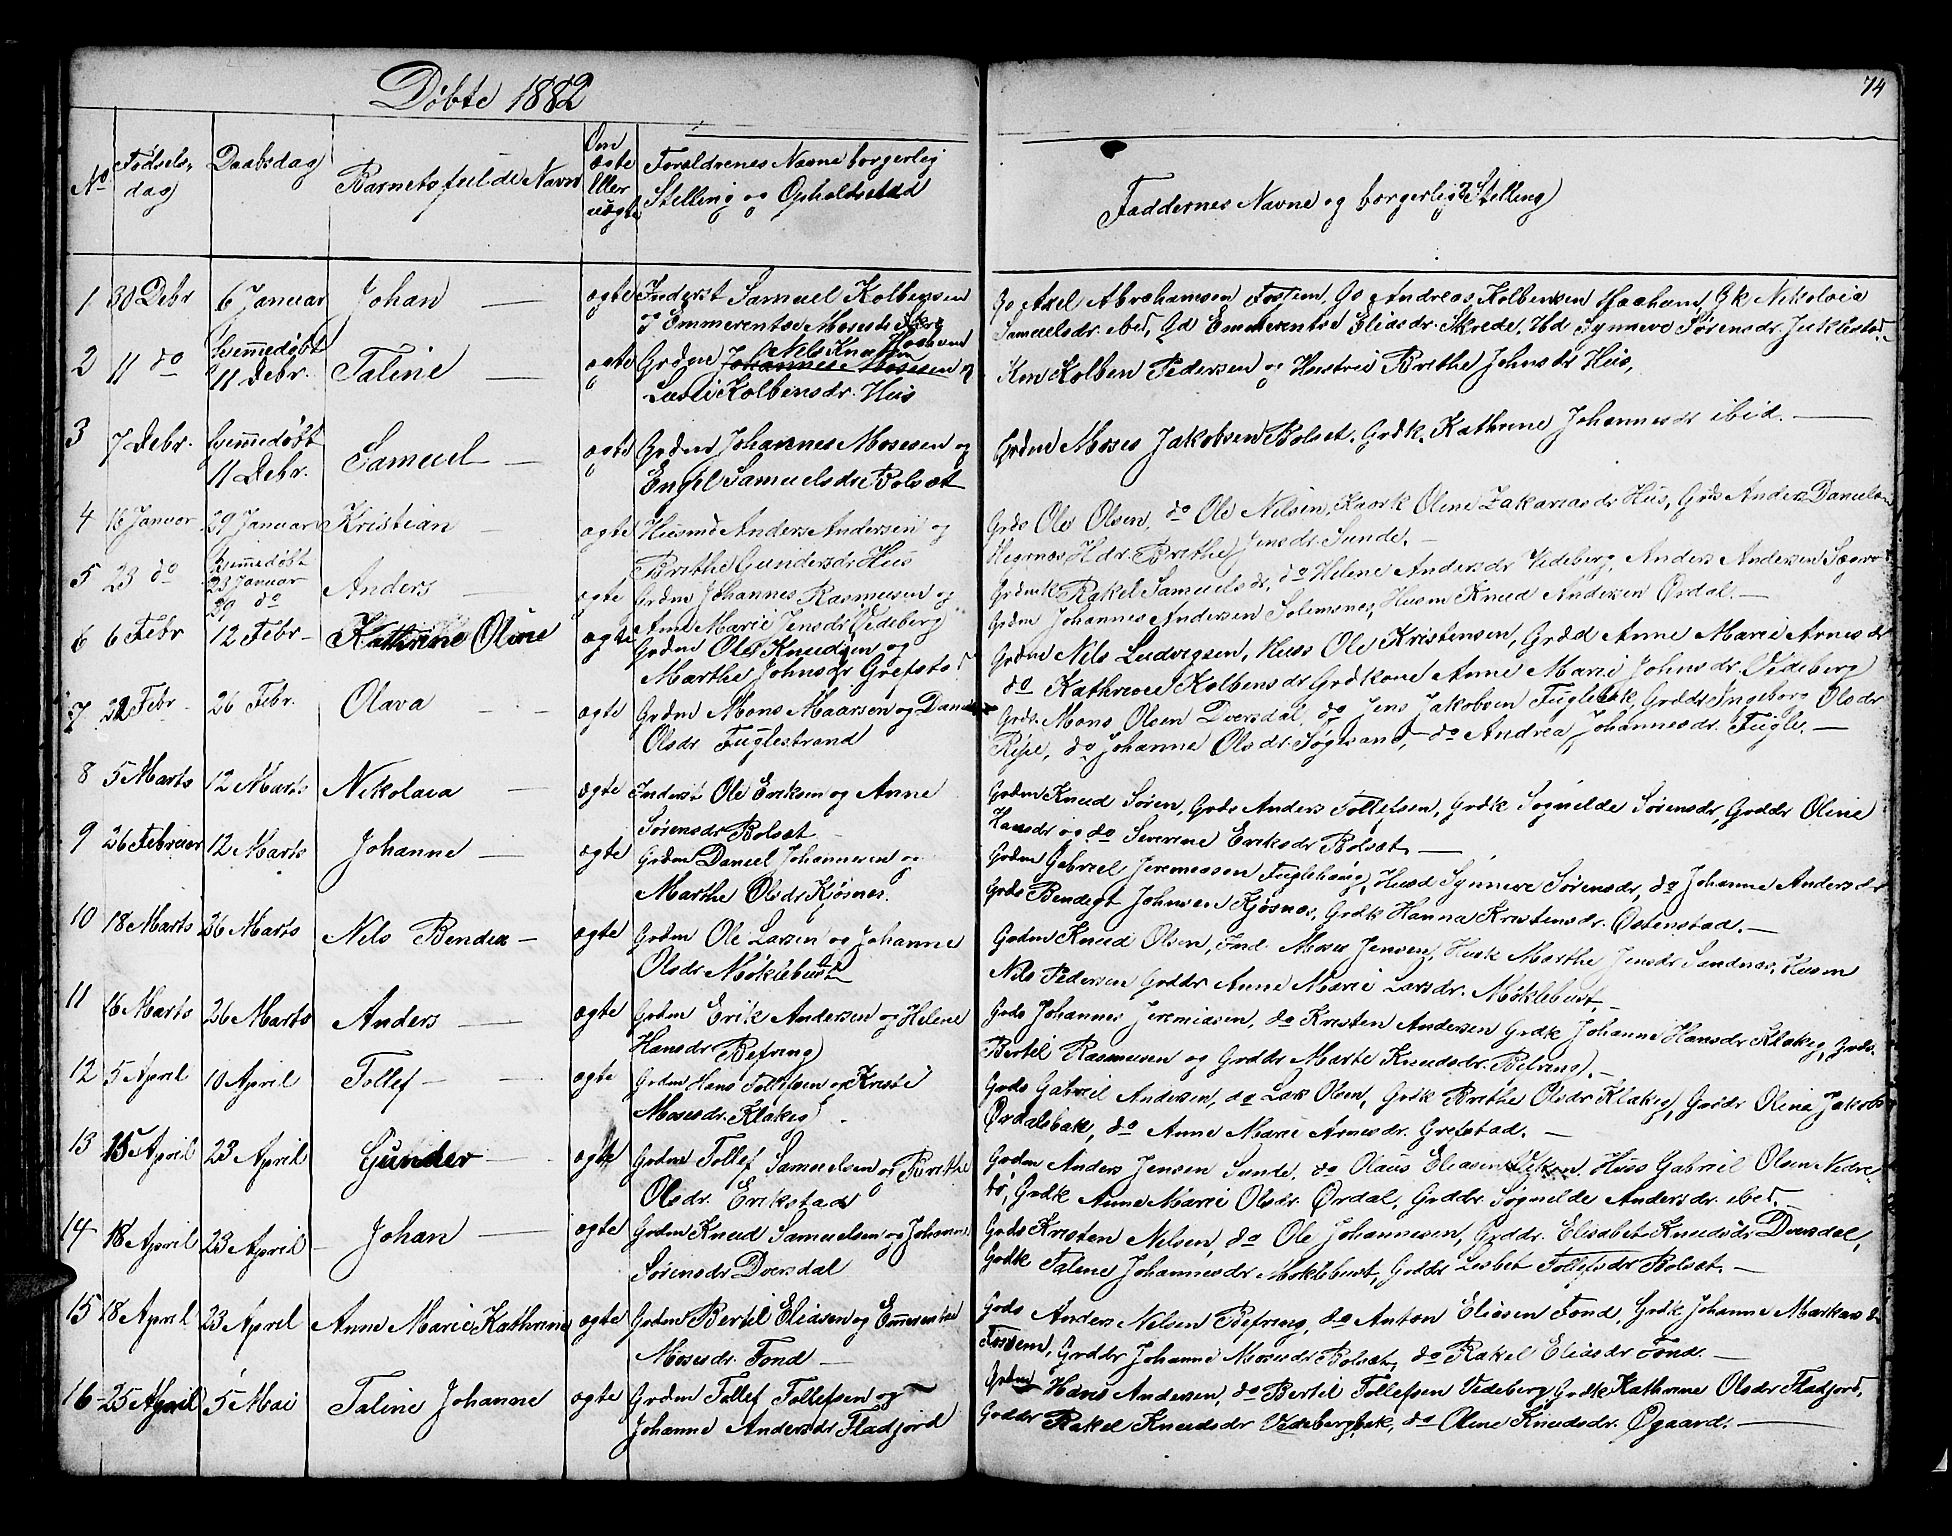 Döbte 1882
74
No
Fødsels-
dag
Daabsdag
Barnets fulde Navn
Om
ægte
Eller
uægte
Foraldrenes Navne borgerlig
Stelling og Opholdsstad
Faddernes Navne og borgerlige Stelling
1 30 Debr 6 Januar Johan — ægte Inderst Samuel Kolbensen
og Emmerentse Mosesdr
Gs Axel Abrahamsen Fossem, Gs Andreas Kolbensen Haaheim, Gk Nikolaia
Samuelsdr. ibed, Gd Emmerentse Eliasdr. Skrede, Hd Synneve Sørensdr. Juklestad.
2 11 do Hjemmedøbt
11 Debr. Taline — ægte Grdm Nils Knutsen
Johannes Mosesen og
Kolbensdr. Hus
Kolben Pedersen og Hustrü Brithe Johnsdr Hus,
3 7 Debr. Hjemmedøbt
11 Debr. Samuel — ægte Grdm Johannes Mosesen og
Engel Samuelsdr Bolsæt
Grdm Moses Jakobsen Bolsæt, Grdk. Kathrine Johannesdr ibid. —
4 Januar 29 Januar Kristian — ægte Husmd Anders Andersen og
Brithe Gundersdr Hus
Grds Ole Olsen, do Ole Nilsen, Olene Zakariasdr Hus, Grds Anders Danielsen
Hegrnæs, Brithe Jensdr. Sunde. —
5 23 do Hjemmedøbt
23 Januar
do Anders — ægte Grdm Johannes Rasmusen og
Ane Marie Jensdr Vedeberg
Grdmk Rakel Samuelsdr, do Helene Andersdr Vedeberg, Anders Andersen
Grdm Johannes Andersen Solemsnes, Husm Knud Andersen Ørdal. —
6 6 Febr 12 Febr — Kathrine Oline ægte Grdm Ole Knudsen og
Marthe Johnsdr Grefstad
Grdm Nils Ludvigsen, Huss Ole Kristensen, Grdd Anne Marie Arnesdr
do Kathrine Kolbensdr Grdkone Anne Marie Johnsdr. Vedeberg
7 22 Febr 26 Febr. Olava — ægte Grdm Mons Maarsen og
Olsdr Fuglestrand
Grds. Mons Olsen Dversdal, do Jens Jakobsen Fuglebak, Grddr Ingeborg Olsdr
Ripe, do Johanne Olsdr. Søgnesand, do Andrea Johannesdr. Fugle. —
8 5 Marts 12 Marts Nikolaia — ægte Inderst Ole Eriksen og Anne
Sørensdr Bolsæt —
Grdm Knud Sören, Grds Anders Tollefsen, Grdk Sognilde Sørensdr, Grddr Oline
Hansdr og do Severine Eriksdr Bolsæt. —
9 26 Februar 12 Marts Johanne — ægte Grdm Daniel Johannesen og
Marthe Olsdr Kjøsnes.
Grdm Gabriel Jeremiasen Fuglehaug, Husd Synneve Sørensdr, do Johanne Andersdr
Grds Bendigt Johnsen Kjøsnes, Grdk Hanna Kristensdr. Østenstad. —
10 18 Marts 26 Marts Nils Bendex — ægte Grdm Ole Larsen og Johanne
Olsdr Møklebust
Grdm Knud Olsen, Ind. Moses Jensen, Husk Marthe Jensdr Sandnes, Husm
Nils Pedersen Grddr Anne Marie Larsdr. Møklebust, —
11 16 Marts 26 Marts Anders — ægte Grdm Erik Andersen og Helene
Hansdr Befring
Grds Johannes Jeremiasen, do Kristen Andersen Grdk Johanne Hansdr Klakeg, Grds.
Bertil Rasmusen og Grddr Marte Knudsdr. Befring. —
12 5 April 10 April Tollef — ægte Grdm Hans Tollefsen og Kriste
Mosesdr. Klakeg —
Grds Gabriel Andersen, do Lars Olsen, Grdk Brithe Olsdr Klakeg, Grddr Olina Jakobs
Ørdalsbak, do Anne Marie Arnesdr. Grefstad. —
13 15 April 23 April Gunder — ægte Grdm Tollef Samuelsen og Brithe
Olsdr. Erikstad
Grdm Anders Jensen Sunde, do Olaus Eliasen, Huss Gabriel Olsen Nedre-
bö, Grdk Anne Marie Olsdr. Ørdal, Grddr. Sognilde Andersdr. ibed. —
14 18 April 23 April — Johan — ægte Grdm Knud Samuelsen og Johanne
Sørensdr Dversdal
Grds Kristen Nelsen, do Ole Johannesen, Grddr. Elisabet Knudsdr Dversdal,
Grdk Taline Johannesdr Møklebust, Grddr Lisbet Tollefsdr Bolsæt. —
15 18 April 23 April Anne Marie Kathrine ægte Grdm Bertil Eliasen og Emmerentse
Mosesdr. Fond —
Grds Anders Nelsen Befring, do Anton Eliasen Fond, Grdk Johanne Markus
Fossem, Grddr Johanne Mosesdr Bolsæt, do Rakel Eliasdr Fond. —
16 — 25 April 5 Mai Taline Johanne ægte Grdm Tollef Tollefsen og
Johanne Andersdr Fladjord
Grdm Hans Andersen, do Bertil Tollefsen Vedeberg, Grdk Kathrine Olsdr Fladjord,
Grddr Rakel Knudsdr Vedebergbak, do Oline Knudsdr. Øgaard. —